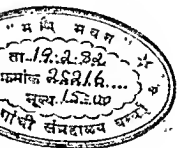 " म णि भ वन "
ता. 19.2.82
क्रमांक 25216....
मूल्य. 15=00
गांधी संग्रहालय